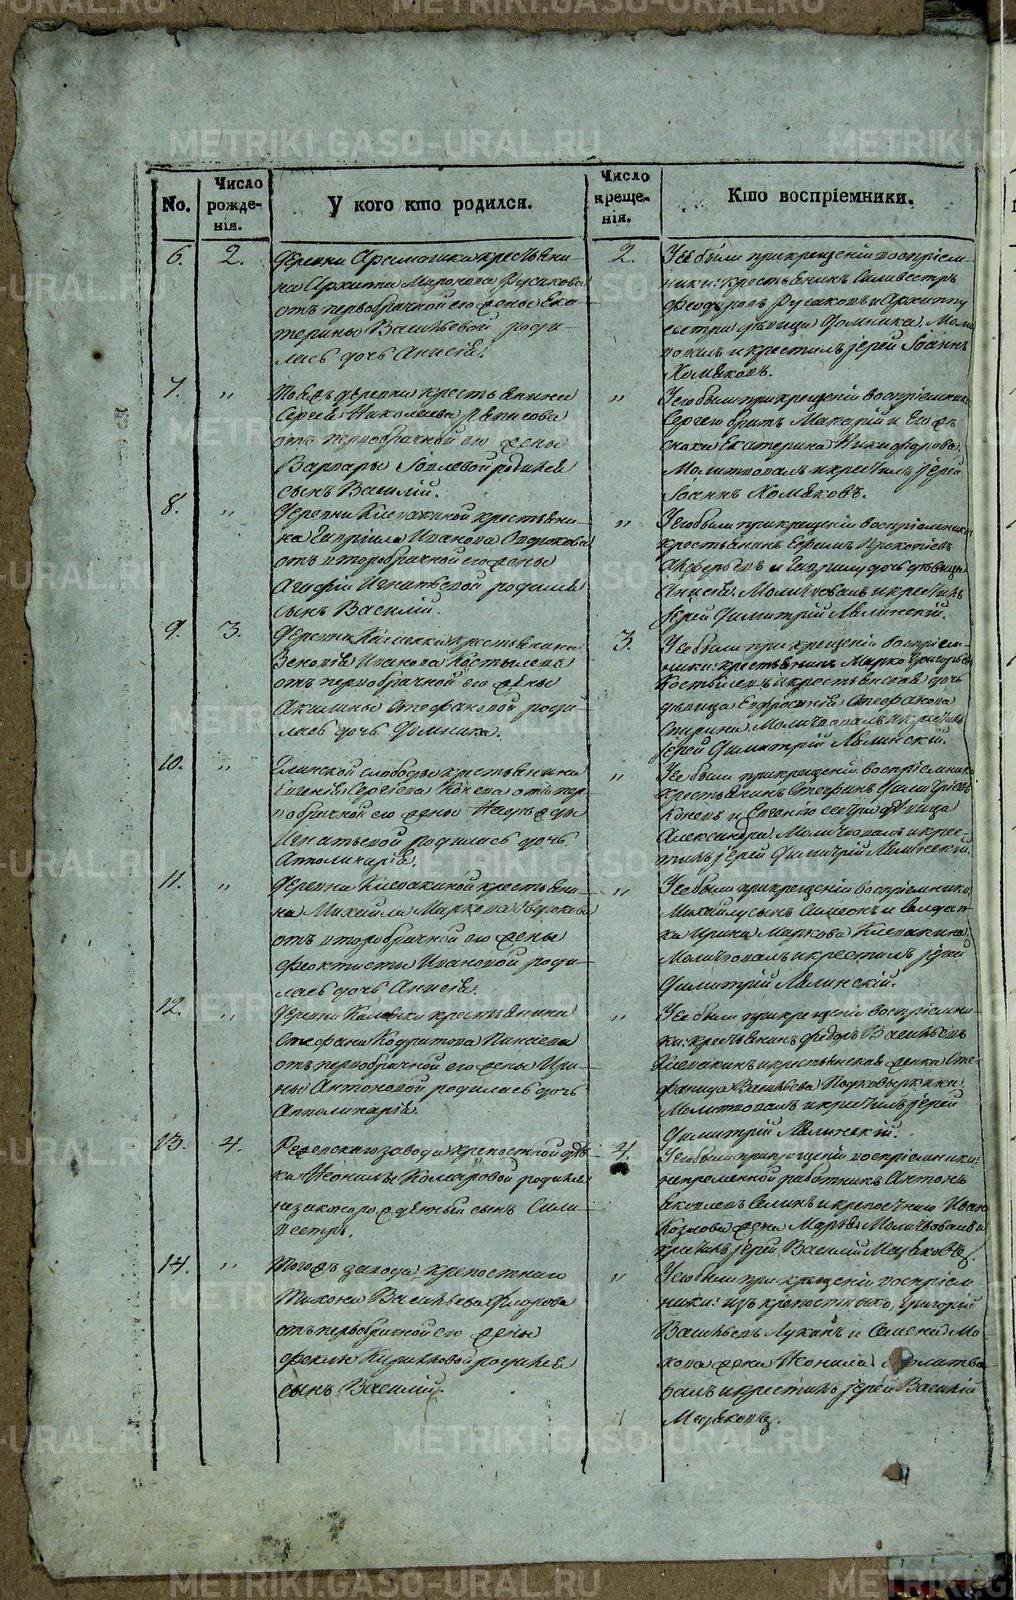 METRIKI.GASO-URAL.RU
No.
Число рожде-нія.
У кого кто родился.
Число креще-нія.
Кто воспріемники.
6.
2.
Деревни крестьяни-
на Архипа Миронова Русакова
отъ первобрачной его жены Ека-
терины Васильевой роди-
лась дочь Анисія.
2.
У ее были при крещеніи воспріем-
ники: крестьянинъ Селивестръ
Феодоровъ Русаковъ и Архиппу
сестра девица Домника. Моли
вовалъ и крестилъ іерей Іоаннъ
Хомяковъ.
7.
„
Тоежъ деревни крестьянина
Сергея Николаева Денисова
отъ первобрачной его жены
Варвары родился
сынъ Василій.
„
У его были при крещеніи воспріемники
Сергею братъ Макарій и
Екатерина Никифорова.
Молитвовалъ и крестилъ іерей
Іоаннъ Хомяковъ.
8.
„
Деревни Клевакиной крестьяни-
на Гавріила Иванова
отъ второбрачной его жены
Агафіи Игнатьевой родился
сынъ Василій.
„
У его были при крещеніи воспріемники
крестьянинъ Ефимъ Прокопіевъ
и Гавріилу дочь девица
Анисія. Молитвовалъ и крестилъ
іерей Димитрій
9.
3.
Деревни крестьянина
Зеновія Иванова Костылева
отъ первобрачной его жены
Акилины Стефановой роди-
лась дочь Домника.
3.
У ее были при крещеніи воспріем-
ники: крестьянинъ Марко Григорьевъ
Костылевъ и крестьянская дочь
девица Евфросинія Стефанова
Молитвовалъ и крестилъ
іерей Димитрій
10.
„
слободы крестьянина
Евгенія Сергіева Конева отъ пер-
вобрачной его жены Надежды
Игнатьевой родилась дочь
Апполинарія.
„
У ее были при крещеніи воспріемники
крестьянинъ Стефанъ Димитріевъ
Коневъ и Евгенію сестра девица
Александра. Молитвовалъ и крес-
тилъ іерей Димитрій
11.
„
Деревни Клевакиной крестьяни-
на Михаила Маркова
отъ второбрачной его жены
Феоктисты Ивановой роди-
лась дочь Анисія.
„
У ее были при крещеніи воспріемники
Михаилу сынъ Симеонъ и солдат-
ка Ирина Маркова Клевакина.
Молитвовалъ и крестилъ іерей
Димитрій
12.
„
Деревни крестьянина
Стефана Кодратова
отъ первобрачной его жены Ири-
ны Антоновой родилась дочь
Апполинарія.
„
У ее были при крещеніи воспріемни-
ки: крестьянинъ Федоръ Васильевъ
Клевакинъ и крестьянская женка Сте-
фанида Васильева Подковыркина.
Молитвовалъ и крестилъ іерей
Димитрій
13.
4.
Режевскаго завода крепостной дев-
ки Неонилы Комаровой родился
незаконорожденный сынъ Сили
вестръ.
4.
У его были при крещеніи воспріемники:
непременной работникъ Антонъ
Яковлевъ и крепостнаго Ивана
Козлова жена Марфа. Молитвовалъ и
крестилъ іерей Василій
14.
„
Тогожъ завода крепостнаго
Тихона Васильева Флорова
отъ первобрачной его жены
Феклы Кириловой родился
сынъ Василій.
„
У его были при крещеніи воспріем-
ники: изъ крепостныхъ, Григорій
Васильевъ Лукинъ и Семена Мо-
кова жена Неонила. Молитво-
валъ и крестилъ іерей Василій